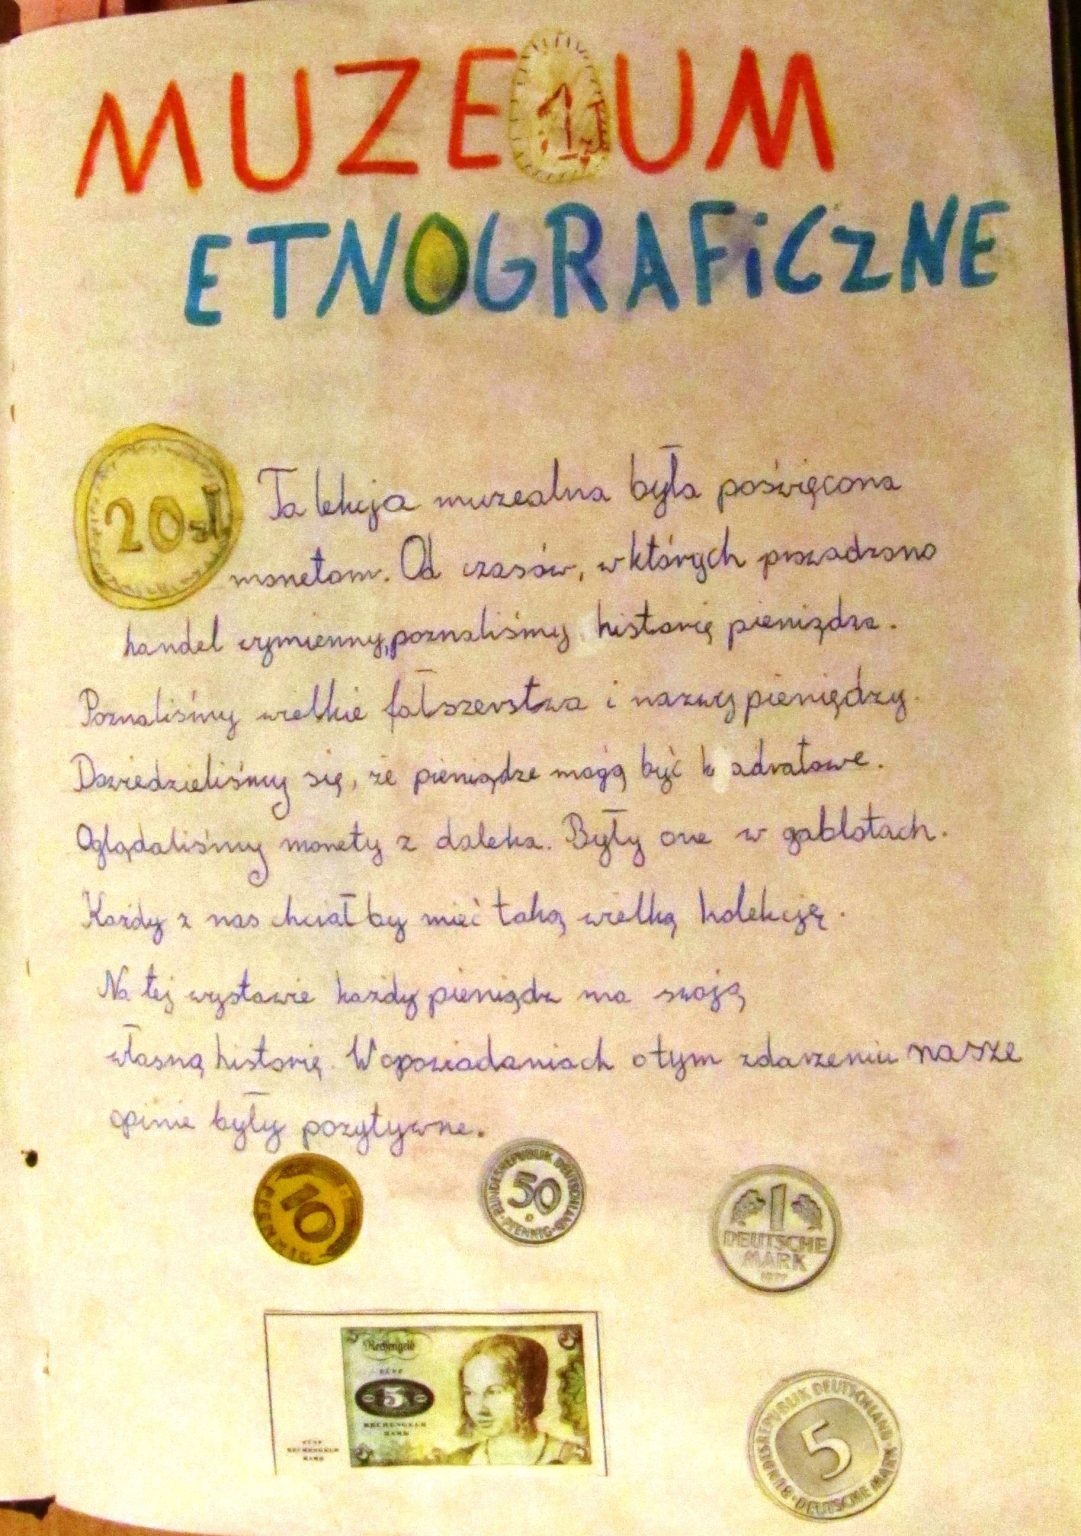 MUZEUM
1 zł
ETNOGRAFiCZNE
20 zł
Ta lekcja muzealna była poświęcona
monetom. Od czasów, w których prowadzono
handel wymienny, poznaliśmy historię pieniądza.
Poznaliśmy wielkie fałszerstwa i nazwy pieniędzy.
Dowiedzieliśmy się, że pieniądze mogą być k adratowe.
Oglądaliśmy monety z daleka. Były one w gablotach.
Każdy z nas chciał by mieć taką wielką kolekcję.
Na tej wystawie każdy pieniądz ma swoją
własną historię. W opowiadaniach o tym zdarzeniu nasze
opinie były pozytywne.
10
PFENNIG
BUNDESREPUBLIK DEUTSCHLAND
50
PFENNIG
1
DEUTSCHE
MARK
5
Rechengeld
5
FÜNF
5
RECHENGELD
MARK
FÜNF
RECHENGELD
MARK
BUNDESREPUBLIK DEUTSCHLAND
5
DEUTSCHE MARK